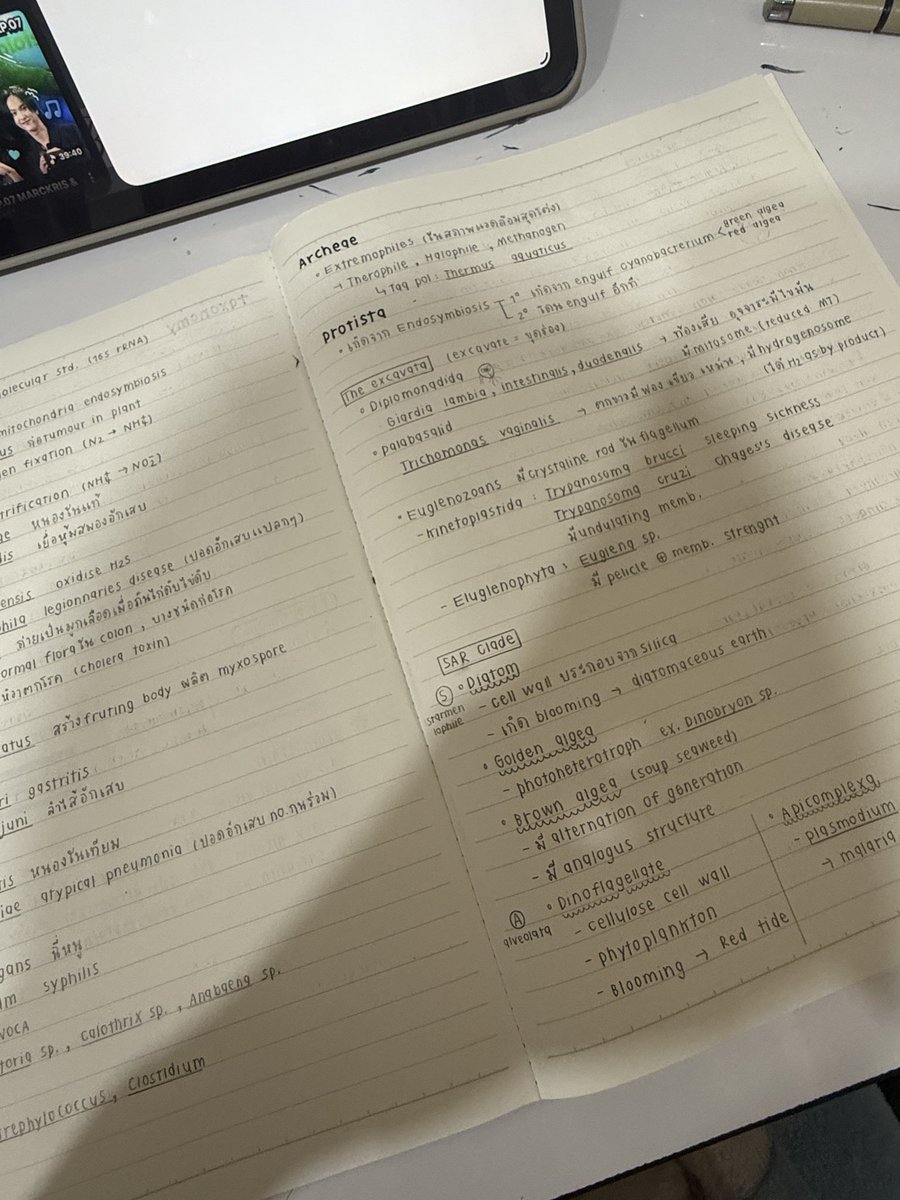 P.07
39:40
P.07 MARCKRIS &
olecular std. (16s rRNA)
mitochondria endosymbiosis
us ก่อtumour in plant
en fixation (N2 → NH4+)
trification (NH4+ → NO2-)
ae หนองในแท้
dis เยื่อหุ้มสมองอักเสบ
ensis oxidise H2S
phila legionnaries disease (ปอดอักเสบแปลกๆ)
ถ่ายเป็นมูกเลือดเมื่อกินไก่ดิบไข่ดิบ
ormal flora ใน colon , บางชนิดก่อโรค
ห์วาตกโรค (cholera toxin)
atus สร้างfruting body ผลิต myxospore
ri gastritis
juni ลำไส้อักเสบ
is หนองในเทียม
iae atypical pneumonia (ปอดอักเสบ
gans ฉี่หนู
um syphilis
VOCA
toria sp. , calothrix sp. , Anabaena sp.
trephylococcus , Clostidium
Archeae
• Extremophiles (ในสภาพแวดล้อมสุดโต่ง)
→ Therophile , Halophile , Methanogen
↳ Taq pol : Thermus aquaticus
protista
• เกิดจาก Endosymbiosis 1° เกิดจาก engulf cyanobacrerium < green algea
red algea
2° โดน engulf อีกที
The excavata (excavate = ขุดร่อง)
• Diplomonadida
Giardia lambia , intestinalis , duodenalis → ท้องเสีย อุจจาระมีไขมัน
มีmitosome (reduced MT)
• palabasalid
Trichomonas vaginalis → ตกขาวมีฟอง เขียว เหม็น , มีhydrogenosome
(ได้ H2 as by product)
• Euglenozoans มีcrystaline rod ในflagellum
- kinetoplastida : Trypanosoma brucci sleeping sickness
Trypanosoma cruzi chages's disease
มีundulating memb.
- Eluglenophyta : Euglena sp.
มี pelicle ⊕ memb. strenght
SAR Clade
Ⓢ • Diatom
starmenlophile
- cell wall ประกอบจาก silica
- เกิด blooming → diatomaceous earth
• Golden algea
- photoheterotroph ex. Dinobryon sp.
• Brown algea (soup seaweed)
- มี alternation of generation
- มี analogus structure
Ⓐ • Dinoflagellate
alveolata
- cellulose cell wall
- phytoplankton
- Blooming → Red tide
• Apicomplexa
- plasmodium
→ malaria